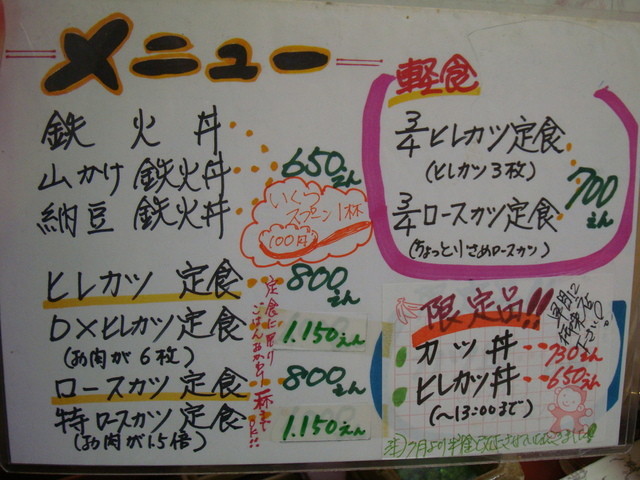 メニュー
鉄火丼
山かけ 鉄火丼 650えん
納豆 鉄火丼
いくら
スプーン1杯
100円
ヒレカツ 定食 800えん
Dxヒレカツ定食 1.150えん
(お肉が6枚)
ロースカツ定食 800えん
特ロースカツ定食 1.150えん
(お肉が1.5倍)
定食に限り
ごはんおかわり
一杯
OK!!
軽食
3/4ヒレカツ定食
(ヒレカツ3枚)
700えん
3/4ロースカツ定食
(ちょっと小さめロースカツ)
限定品!!
カツ丼 730えん
ヒレカツ丼 650えん
(〜13:00まで)